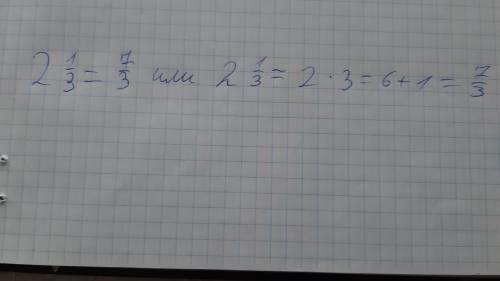 2 1/3 = 7/3 или 2 1/3 = 2 · 3 = 6 + 1 = 7/3